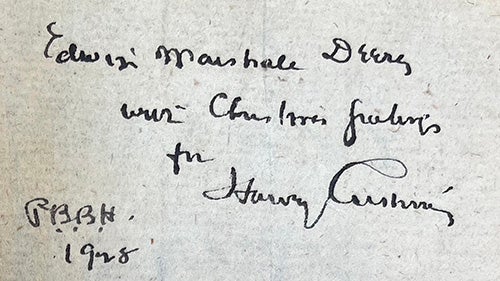 Edwin Marshall Deery
with Christmas greetings
from
Harvey Cushing
P.B.B.H.
1928